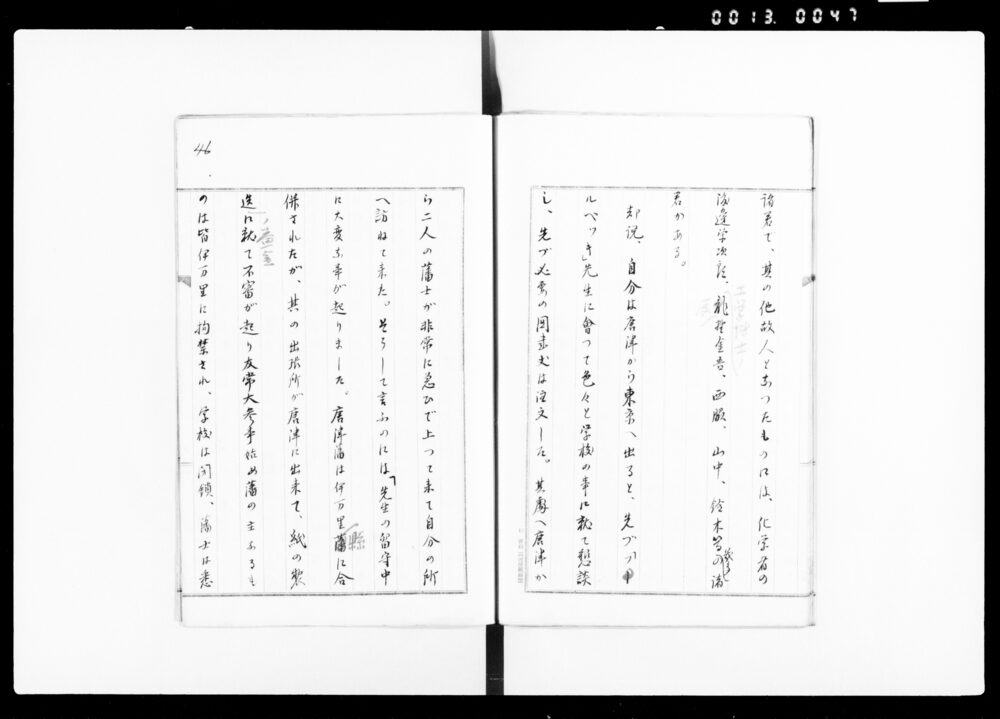 0013.0047
諸君で、其の他故人となつたものには、化学者の
渡邊栄次郎、龍野金吾、西脇、山中、鈴木等の諸
工学博士
君がある。
却説、自分は唐津から東京へ出ると、先づフ
ルベッキ先生に會つて色々と学校の事に就て懇談
し、先づ必要の図書丈は注文した。其處へ唐津か
46
ら二人の藩士が非常に急ひで上つて来て自分の所
へ訪ねて来た。そうして言ふのには「先生の留守中
に大変な事が起りました。唐津藩は伊万里藩に合
縣
併されたが、其の出張所が唐津に出来て、紙の製
造に就て不審が起り友常大参事始め藩の主なるも
のは皆伊万里に拘禁され、学校は閉鎖、藩士は悉